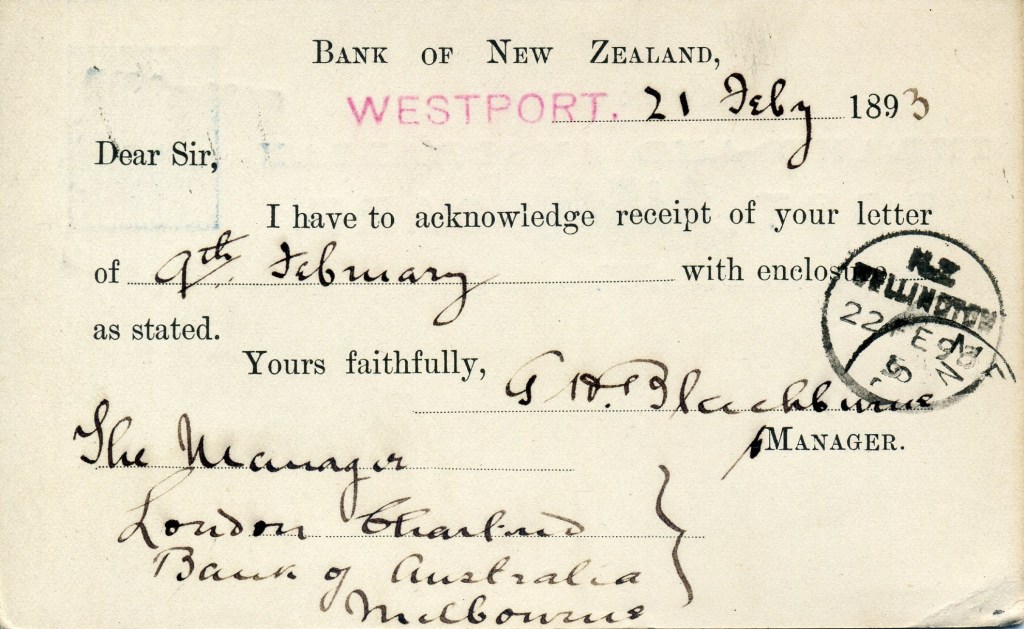 BANK OF NEW ZEALAND,
WESTPORT. 21 Feby 1893
Dear Sir,
I have to acknowledge receipt of your letter
of 9th February with enclosure
as stated.
Yours faithfully,
G H. Blackburne
MANAGER.
The Manager
London Chartered
Bank of Australia
Melbourne
N.Z
WELLINGTON
22 FE 93